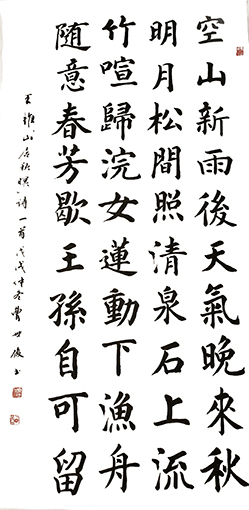 空山新雨後天氣晚來秋
明月松間照清泉石上流
竹喧歸浣女蓮動下漁舟
随意春芳歇王孫自可留
王維山居秋暝詩一首戊戌仲冬曹世俊书